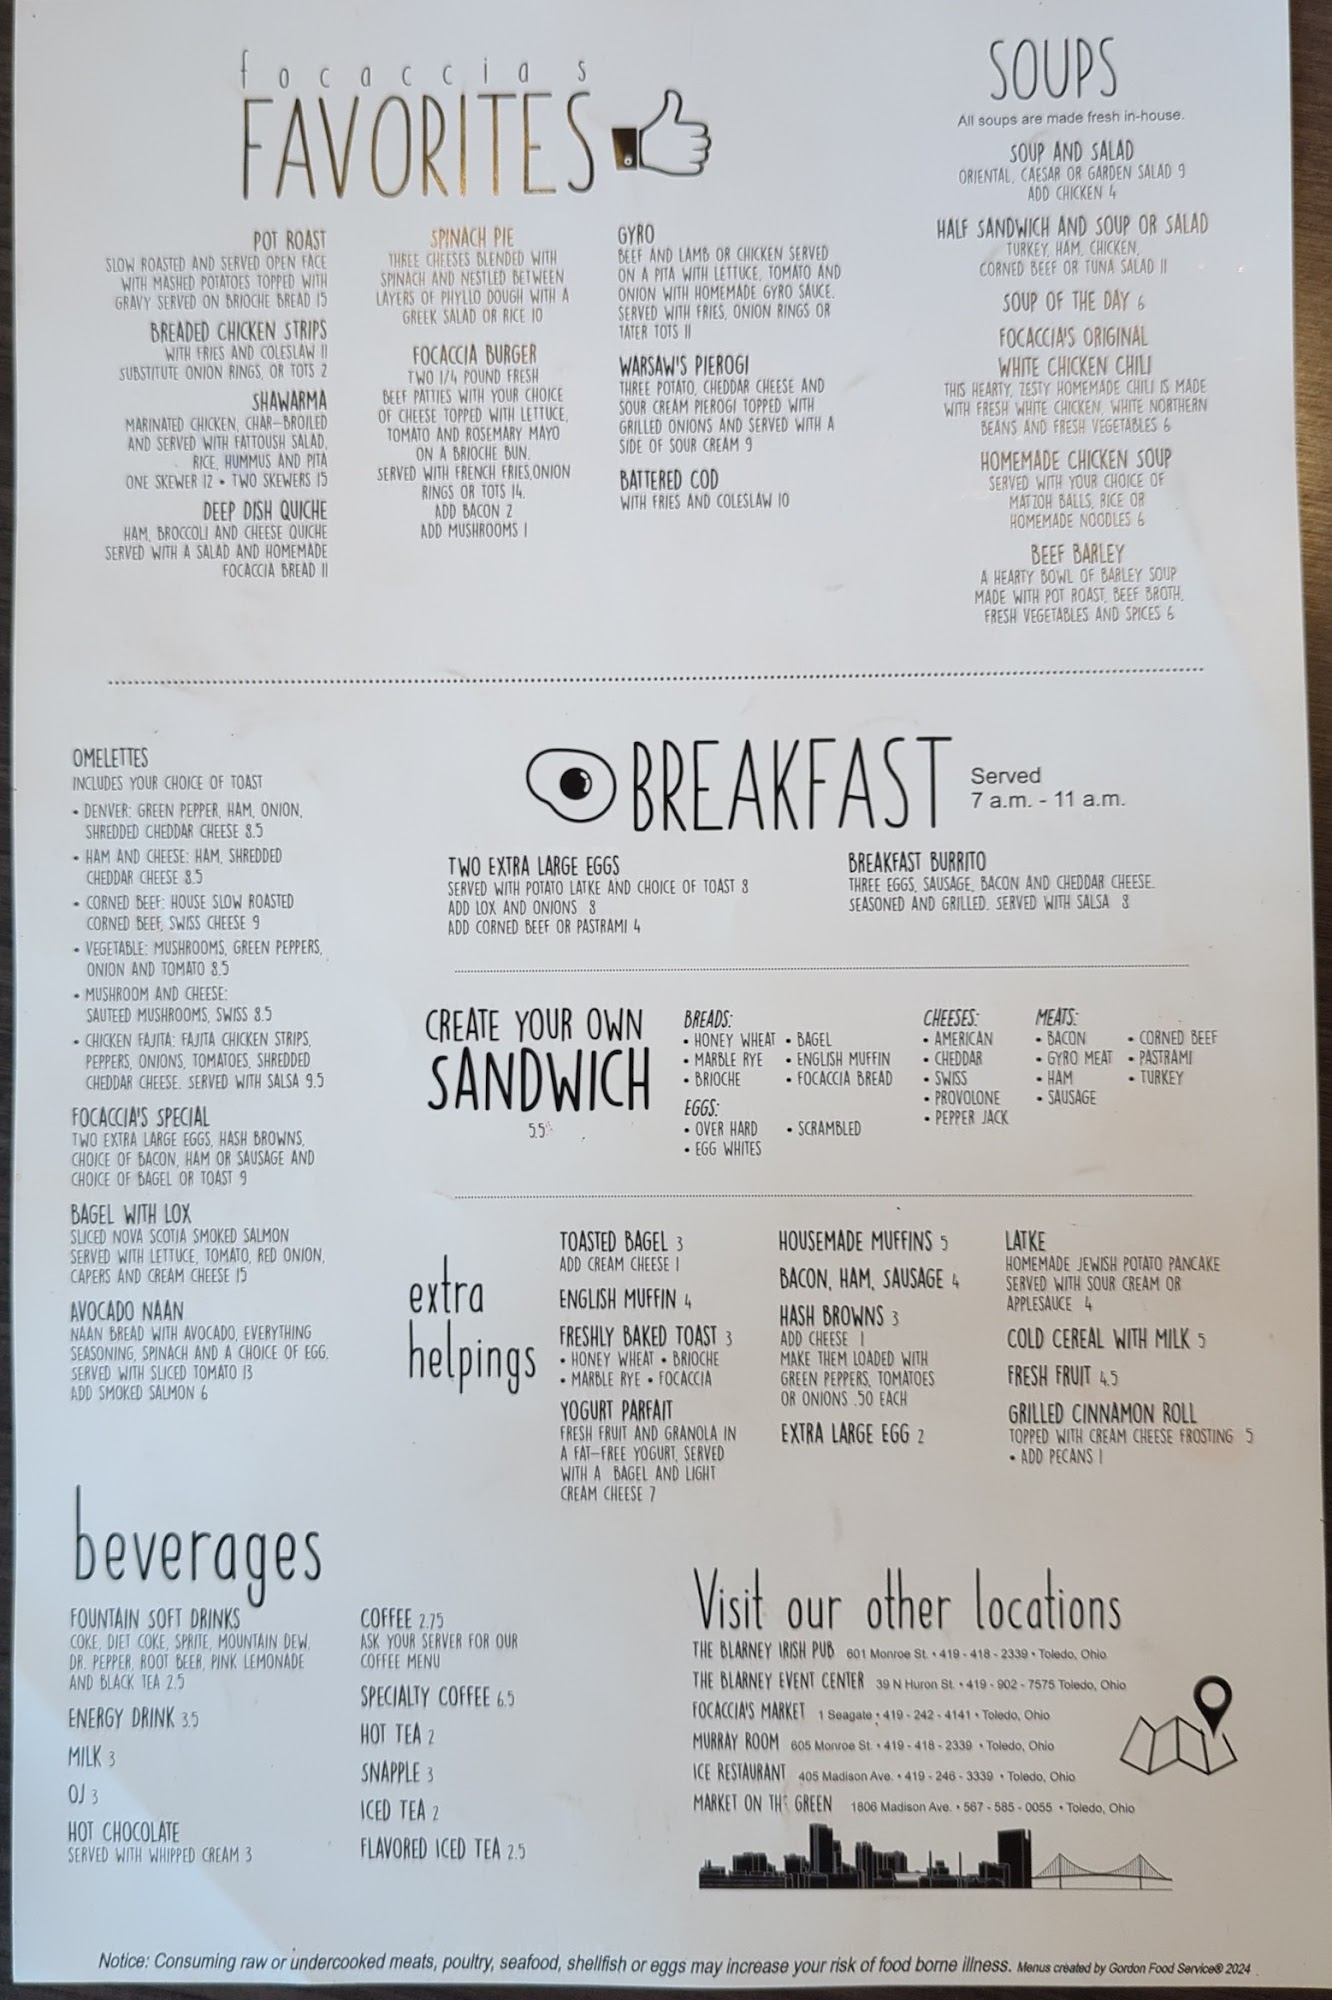 focaccia's
FAVORITES
POT ROAST
SLOW ROASTED AND SERVED OPEN FACE
WITH MASHED POTATOES TOPPED WITH
GRAVY SERVED ON BRIOCHE BREAD 15
BREADED CHICKEN STRIPS
WITH FRIES AND COLESLAW 11
SUBSTITUTE ONION RINGS, OR TOTS 2
SHAWARMA
MARINATED CHICKEN, CHAR-BROILED
AND SERVED WITH FATTOUSH SALAD,
RICE, HUMMUS AND PITA
ONE SKEWER 12 • TWO SKEWERS 15
DEEP DISH QUICHE
HAM, BROCCOLI AND CHEESE QUICHE
SERVED WITH A SALAD AND HOMEMADE
FOCACCIA BREAD 11
SPINACH PIE
THREE CHEESES BLENDED WITH
SPINACH AND NESTLED BETWEEN
LAYERS OF PHYLLO DOUGH WITH A
GREEK SALAD OR RICE 10
FOCACCIA BURGER
TWO 1/4 POUND FRESH
BEEF PATTIES WITH YOUR CHOICE
OF CHEESE TOPPED WITH LETTUCE,
TOMATO AND ROSEMARY MAYO
ON A BRIOCHE BUN.
SERVED WITH FRENCH FRIES,ONION
RINGS OR TOTS 14.
ADD BACON 2
ADD MUSHROOMS 1
GYRO
BEEF AND LAMB OR CHICKEN SERVED
ON A PITA WITH LETTUCE, TOMATO AND
ONION WITH HOMEMADE GYRO SAUCE.
SERVED WITH FRIES, ONION RINGS OR
TATER TOTS 11
WARSAW'S PIEROGI
THREE POTATO, CHEDDAR CHEESE AND
SOUR CREAM PIEROGI TOPPED WITH
GRILLED ONIONS AND SERVED WITH A
SIDE OF SOUR CREAM 9
BATTERED COD
WITH FRIES AND COLESLAW 10
SOUPS
All soups are made fresh in-house.
SOUP AND SALAD
ORIENTAL, CAESAR OR GARDEN SALAD 9
ADD CHICKEN 4
HALF SANDWICH AND SOUP OR SALAD
TURKEY, HAM, CHICKEN,
CORNED BEEF OR TUNA SALAD 11
SOUP OF THE DAY 6
FOCACCIA'S ORIGINAL
WHITE CHICKEN CHILI
THIS HEARTY, ZESTY HOMEMADE CHILI IS MADE
WITH FRESH WHITE CHICKEN, WHITE NORTHERN
BEANS AND FRESH VEGETABLES 6
HOMEMADE CHICKEN SOUP
SERVED WITH YOUR CHOICE OF
MATZOH BALLS, RICE OR
HOMEMADE NOODLES 6
BEEF BARLEY
A HEARTY BOWL OF BARLEY SOUP
MADE WITH POT ROAST, BEEF BROTH,
FRESH VEGETABLES AND SPICES 6
OMELETTES
INCLUDES YOUR CHOICE OF TOAST
• DENVER: GREEN PEPPER, HAM, ONION,
SHREDDED CHEDDAR CHEESE 8.5
• HAM AND CHEESE: HAM, SHREDDED
CHEDDAR CHEESE 8.5
• CORNED BEEF: HOUSE SLOW ROASTED
CORNED BEEF, SWISS CHEESE 9
• VEGETABLE: MUSHROOMS, GREEN PEPPERS,
ONION AND TOMATO 8.5
• MUSHROOM AND CHEESE:
SAUTEED MUSHROOMS, SWISS 8.5
• CHICKEN FAJITA: FAJITA CHICKEN STRIPS,
PEPPERS, ONIONS, TOMATOES, SHREDDED
CHEDDAR CHEESE. SERVED WITH SALSA 9.5
FOCACCIA'S SPECIAL
TWO EXTRA LARGE EGGS, HASH BROWNS,
CHOICE OF BACON, HAM OR SAUSAGE AND
CHOICE OF BAGEL OR TOAST 9
BAGEL WITH LOX
SLICED NOVA SCOTIA SMOKED SALMON
SERVED WITH LETTUCE, TOMATO, RED ONION,
CAPERS AND CREAM CHEESE 15
AVOCADO NAAN
NAAN BREAD WITH AVOCADO, EVERYTHING
SEASONING, SPINACH AND A CHOICE OF EGG.
SERVED WITH SLICED TOMATO 13
ADD SMOKED SALMON 6
BREAKFAST
Served
7 a.m. - 11 a.m.
TWO EXTRA LARGE EGGS
SERVED WITH POTATO LATKE AND CHOICE OF TOAST 8
ADD LOX AND ONIONS 8
ADD CORNED BEEF OR PASTRAMI 4
BREAKFAST BURRITO
THREE EGGS, SAUSAGE, BACON AND CHEDDAR CHEESE.
SEASONED AND GRILLED. SERVED WITH SALSA 8
CREATE YOUR OWN
SANDWICH
5.5
BREADS:
• HONEY WHEAT • BAGEL
• MARBLE RYE • ENGLISH MUFFIN
• BRIOCHE • FOCACCIA BREAD
EGGS:
• OVER HARD • SCRAMBLED
• EGG WHITES
CHEESES:
• AMERICAN
• CHEDDAR
• SWISS
• PROVOLONE
• PEPPER JACK
MEATS:
• BACON • CORNED BEEF
• GYRO MEAT • PASTRAMI
• HAM • TURKEY
• SAUSAGE
extra
helpings
TOASTED BAGEL 3
ADD CREAM CHEESE 1
ENGLISH MUFFIN 4
FRESHLY BAKED TOAST 3
• HONEY WHEAT • BRIOCHE
• MARBLE RYE • FOCACCIA
YOGURT PARFAIT
FRESH FRUIT AND GRANOLA IN
A FAT-FREE YOGURT, SERVED
WITH A BAGEL AND LIGHT
CREAM CHEESE 7
HOUSEMADE MUFFINS 5
BACON, HAM, SAUSAGE 4
HASH BROWNS 3
ADD CHEESE 1
MAKE THEM LOADED WITH
GREEN PEPPERS, TOMATOES
OR ONIONS .50 EACH
EXTRA LARGE EGG 2
LATKE
HOMEMADE JEWISH POTATO PANCAKE
SERVED WITH SOUR CREAM OR
APPLESAUCE 4
COLD CEREAL WITH MILK 5
FRESH FRUIT 4.5
GRILLED CINNAMON ROLL
TOPPED WITH CREAM CHEESE FROSTING 5
• ADD PECANS 1
beverages
FOUNTAIN SOFT DRINKS
COKE, DIET COKE, SPRITE, MOUNTAIN DEW,
DR. PEPPER, ROOT BEER, PINK LEMONADE
AND BLACK TEA 2.5
ENERGY DRINK 3.5
MILK 3
OJ 3
HOT CHOCOLATE
SERVED WITH WHIPPED CREAM 3
COFFEE 2.75
ASK YOUR SERVER FOR OUR
COFFEE MENU
SPECIALTY COFFEE 6.5
HOT TEA 2
SNAPPLE 3
ICED TEA 2
FLAVORED ICED TEA 2.5
Visit our other locations
THE BLARNEY IRISH PUB 601 Monroe St. • 419 - 418 - 2339 • Toledo, Ohio
THE BLARNEY EVENT CENTER 39 N Huron St. • 419 - 902 - 7575 Toledo, Ohio
FOCACCIA'S MARKET 1 Seagate • 419 - 242 - 4141 • Toledo, Ohio
MURRAY ROOM 605 Monroe St. • 419 - 418 - 2339 • Toledo, Ohio
ICE RESTAURANT 405 Madison Ave. • 419 - 246 - 3339 • Toledo, Ohio
MARKET ON THE GREEN 1806 Madison Ave. • 567 - 585 - 0055 • Toledo, Ohio
Notice: Consuming raw or undercooked meats, poultry, seafood, shellfish or eggs may increase your risk of food borne illness. Menus created by Gordon Food Service® 2024